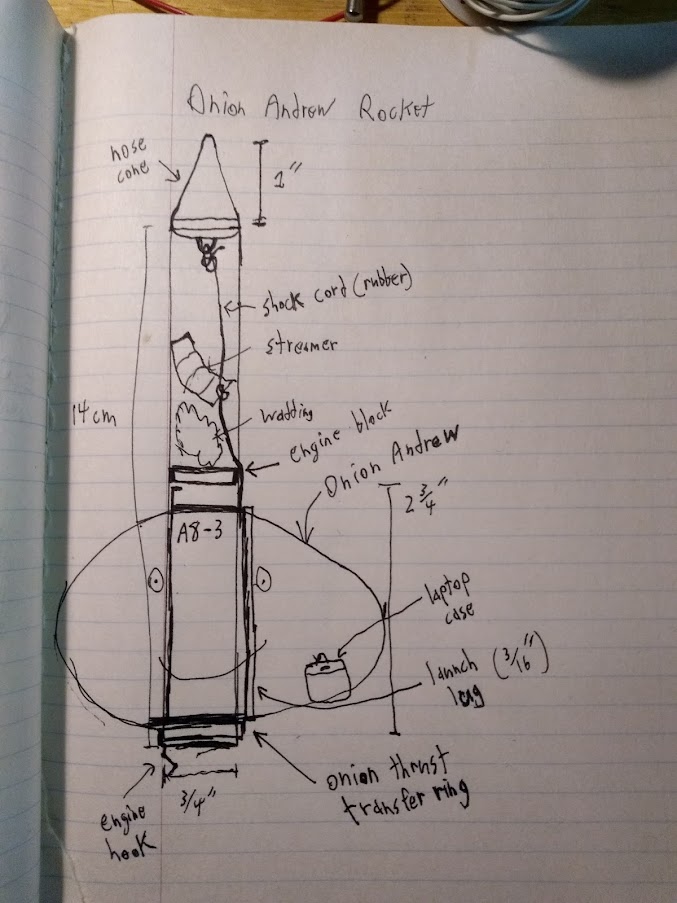 Onion Andrew Rocket
nose
cone
1"
shock cord (rubber)
streamer
14 cm
wadding
engine block
Onion Andrew
2 3/4"
A8-3
laptop
case
launch (3/16")
lug
onion thrust
transfer ring
3/4"
engine
hook